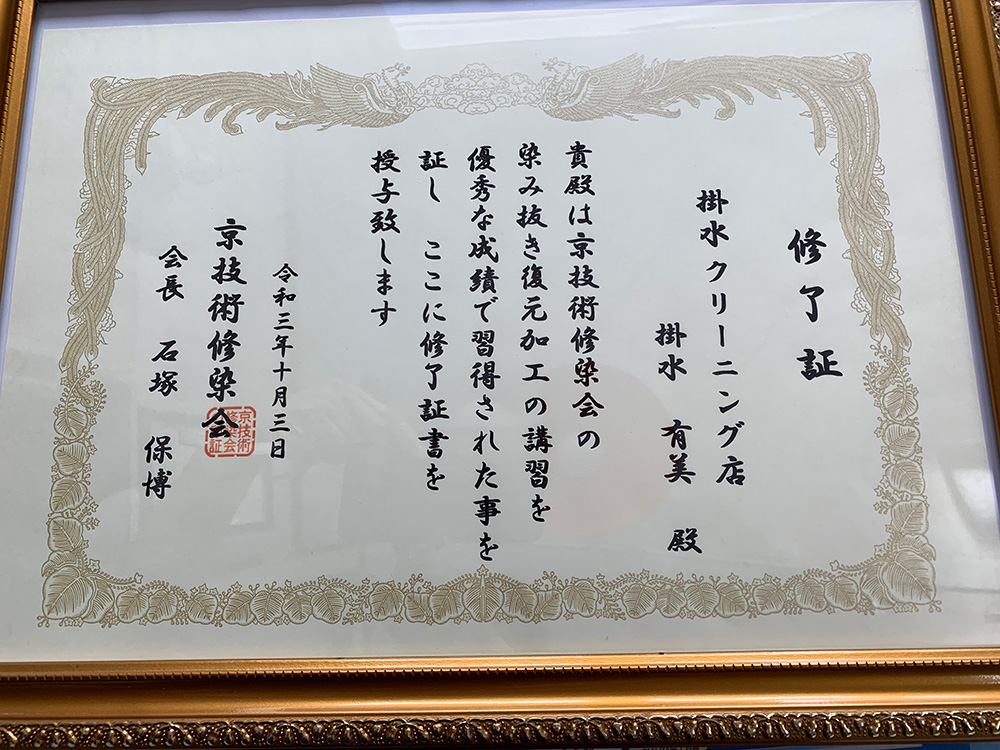 修了証
掛水クリーニング店
掛水 有美 殿
貴殿は京技術修染会の
染み抜き復元加工の講習を
優秀な成績で習得された事を
証し ここに修了証書を
授与致します
令和三年十月三日
京技術修染会
会長 石塚 保博
京技術
修染会
証